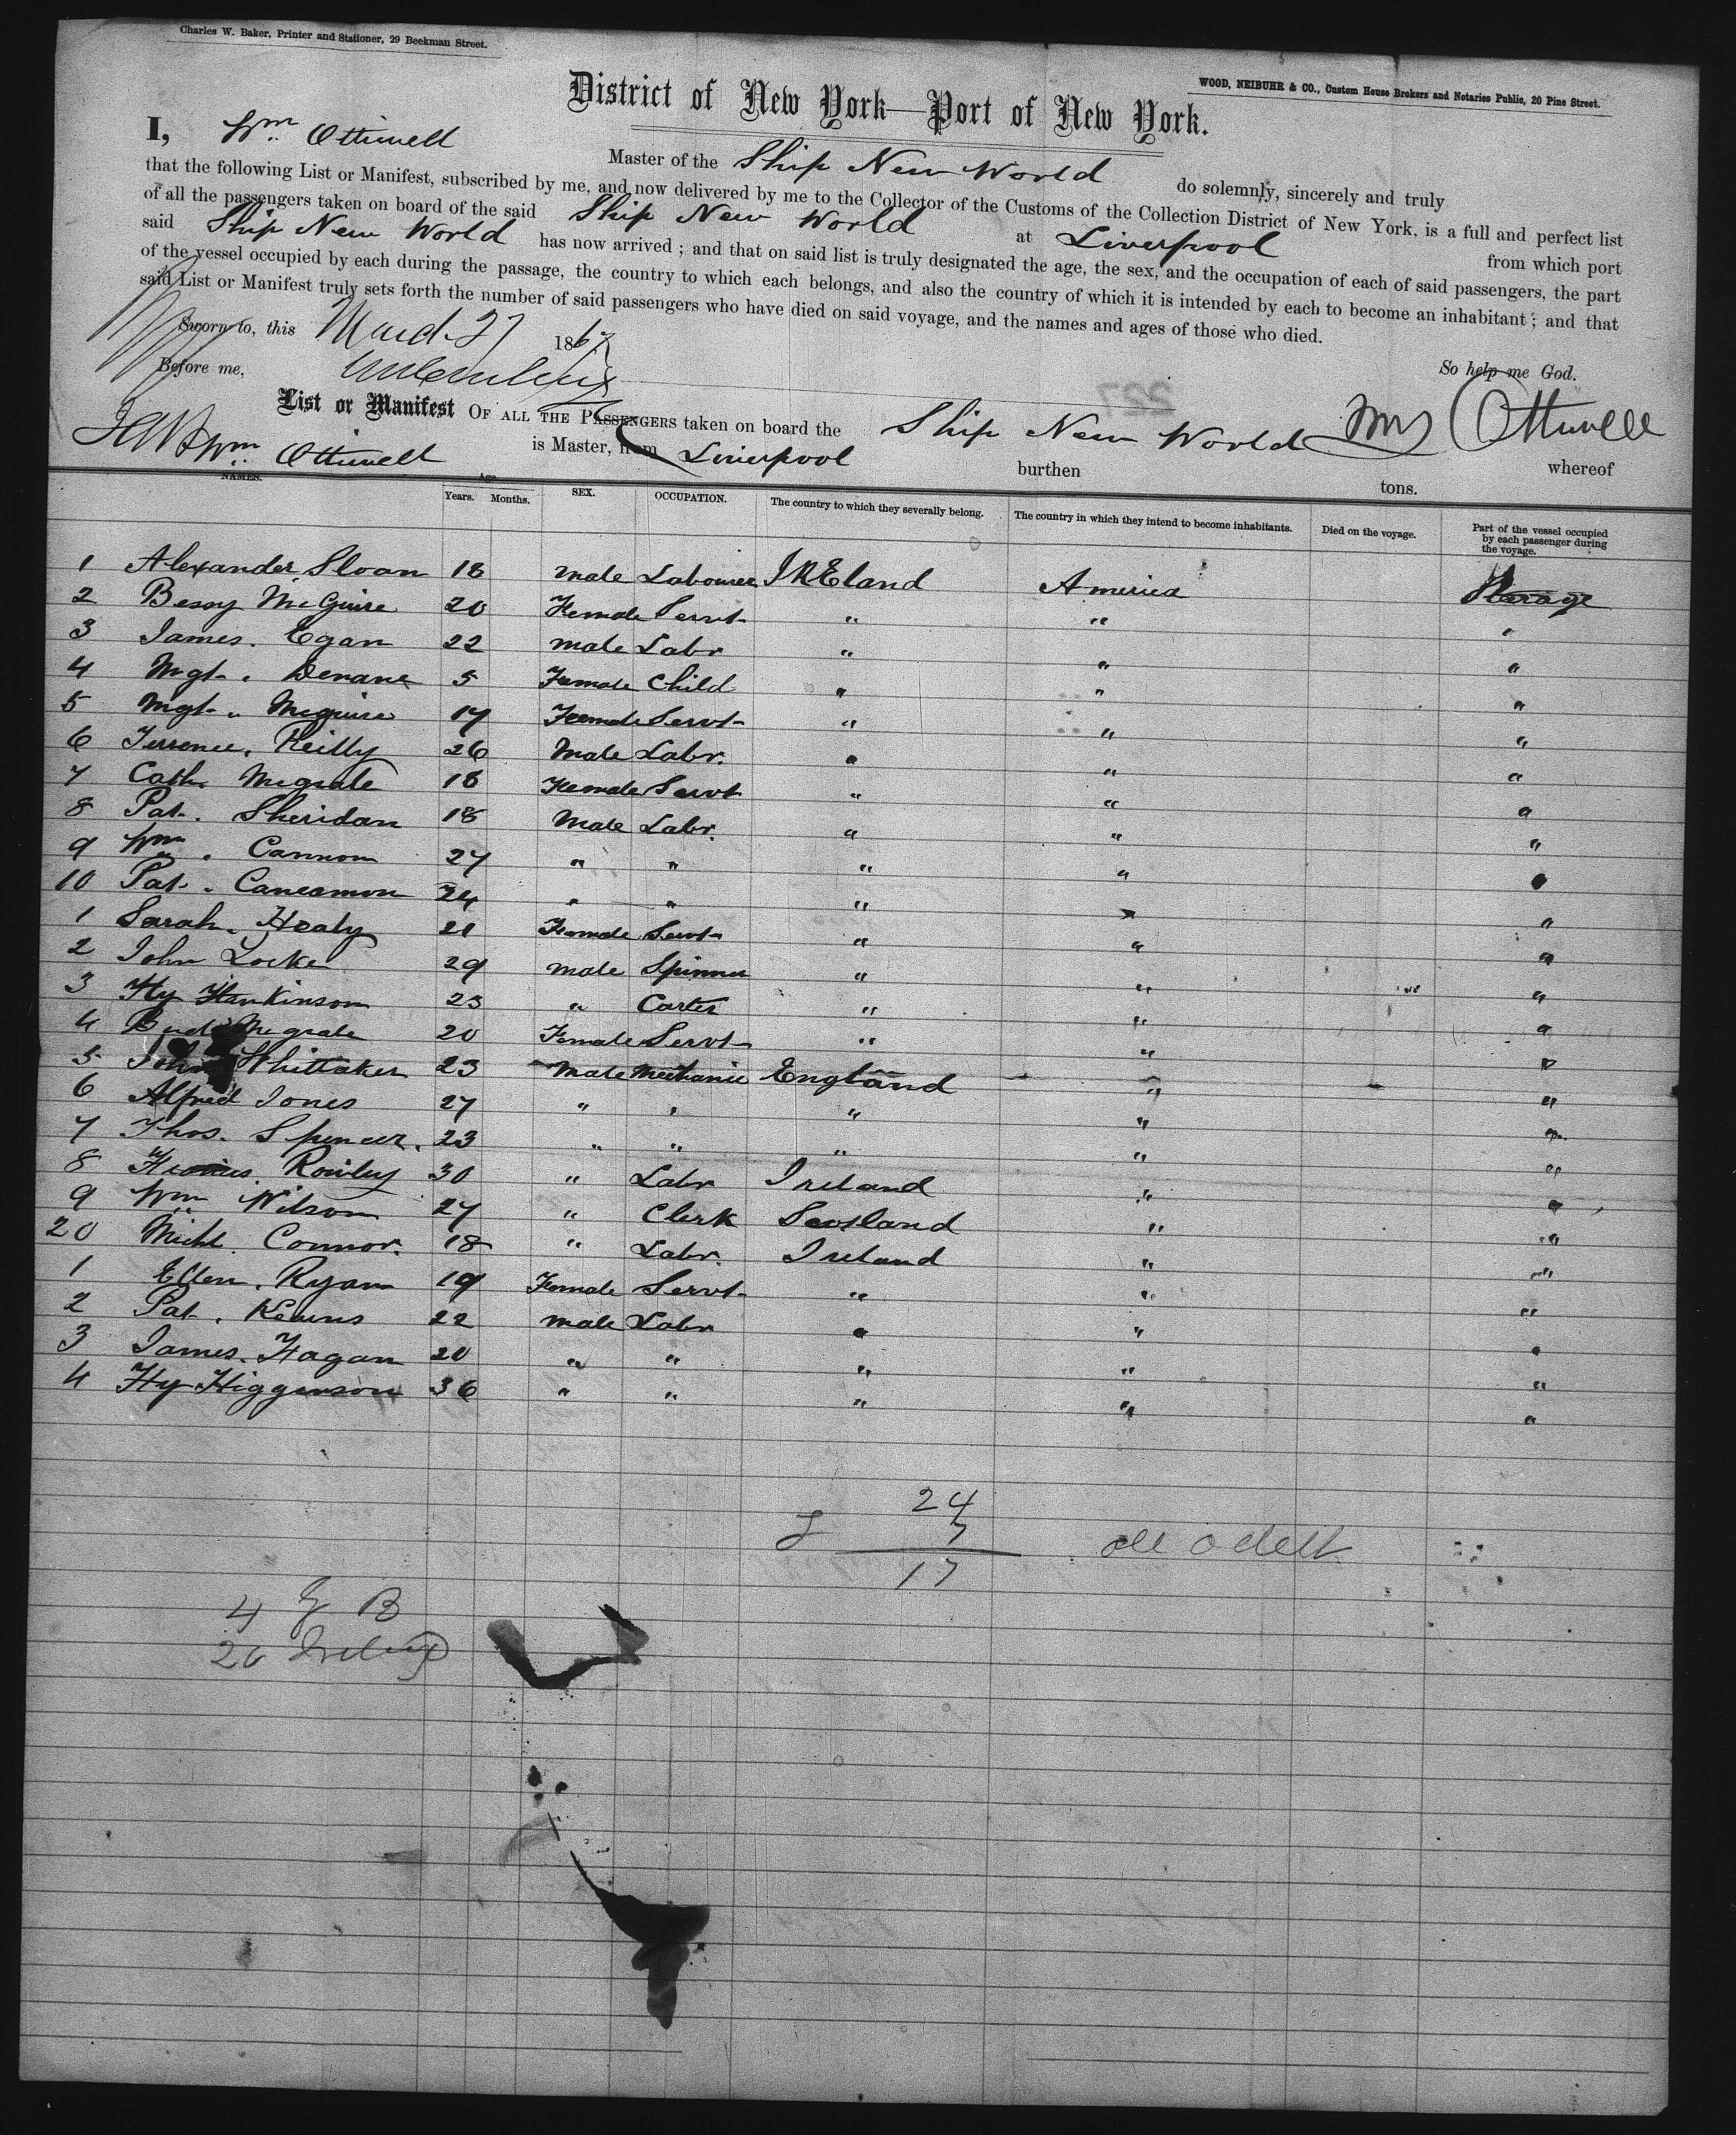 Charles W. Baker, Printer and Stationer, 29 Beekman Street.
WOOD, NEIBUHR & CO., Custom House Brokers and Notaries Public, 20 Pine Street.
District of New York—Port of New York.
I, Wm Ottiwell Master of the Ship New World do solemnly, sincerely and truly
that the following List or Manifest, subscribed by me, and now delivered by me to the Collector of the Customs of the Collection District of New York, is a full and perfect list
of all the passengers taken on board of the said Ship New World at Liverpool from which port
said Ship New World has now arrived ; and that on said list is truly designated the age, the sex, and the occupation of each of said passengers, the part
of the vessel occupied by each during the passage, the country to which each belongs, and also the country of which it is intended by each to become an inhabitant ; and that
said List or Manifest truly sets forth the number of said passengers who have died on said voyage, and the names and ages of those who died.
Sworn to, this March 27 1867
So help me God.
Before me,
227
Wm Ottiwell
List or Manifest OF ALL THE PASSENGERS taken on board the Ship New World burthen tons. whereof
Wm Ottiwell is Master, from Liverpool
NAMES. Age Years. Months. SEX. OCCUPATION. The country to which they severally belong. The country in which they intend to become inhabitants. Died on the voyage. Part of the vessel occupied by each passenger during the voyage.
1 Alexander Sloan 18 male Labourer IREland America Sterage
2 Bessy McGuire 20 Female Servt " " "
3 James. Egan 22 male Labr " " "
4 Mgt. Denane 5 Female Child " " "
5 Mgt. Meguire 17 Female Servt " " "
6 Terrence. Reilly 26 Male Labr. " " "
7 Cath. Megrale 18 Female Servt " " "
8 Pat. Sheridan 18 Male Labr. " " "
9 Wm. Cannon 27 " " " " "
10 Pat. Caneamon 24 " " " " "
1 Sarah. Healy 21 Female Servt " " "
2 John Locke 29 male Spinner " " "
3 Hy Hankinson 23 " Carter " " "
4 Megrale 20 Female Servt " " "
5 John Whittaker 23 Male Mechanic England " "
6 Alfred Jones 27 " " " " "
7 Thos. Spencer. 23 " " " " "
8 Rowley 30 " Labr Ireland " "
9 Wm Wilson 27 " Clerk Scotland " "
20 Michl. Connor. 18 " Labr. Ireland " "
1 Ellen. Ryan 19 Female Servt " " "
2 Pat. Kearns 22 male Labr " " "
3 James. Hagan 20 " " " " "
4 Hy Higginson 36 " " " " "
24
7
17
4 G B
20